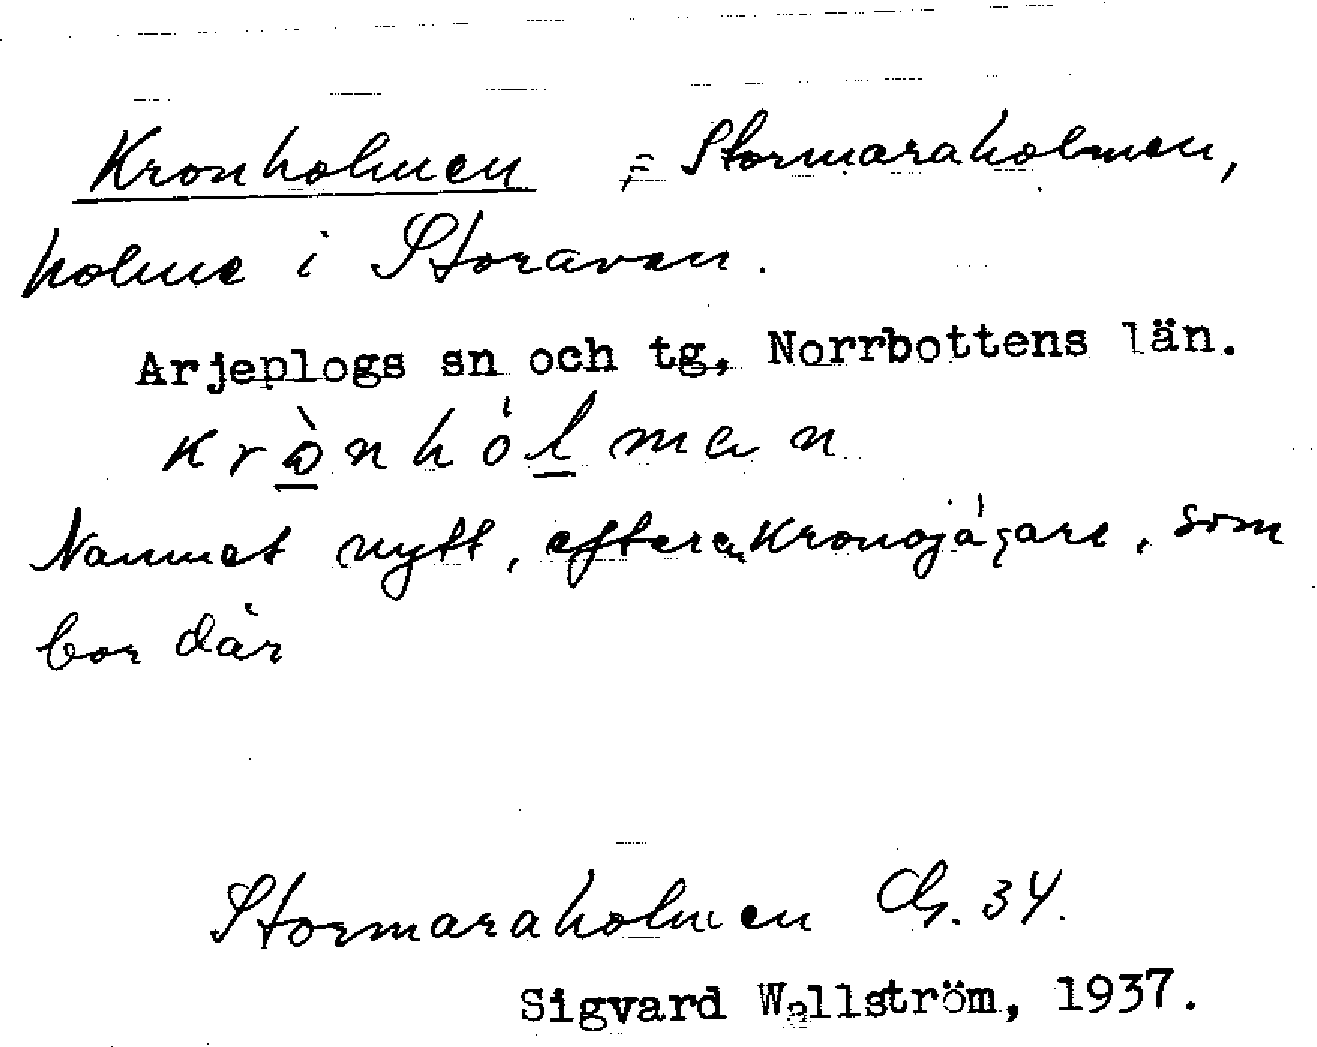 Kronholmen = Stormaraholmen,
holme i Storavan.
Arjeplogs sn och tg, Norrbottens län.
krò̲nhól̲man
Namnet nytt, efter en Kronojägare, som
bor där
Stormaraholmen Gk. 34.
Sigvard Wallström, 1937.